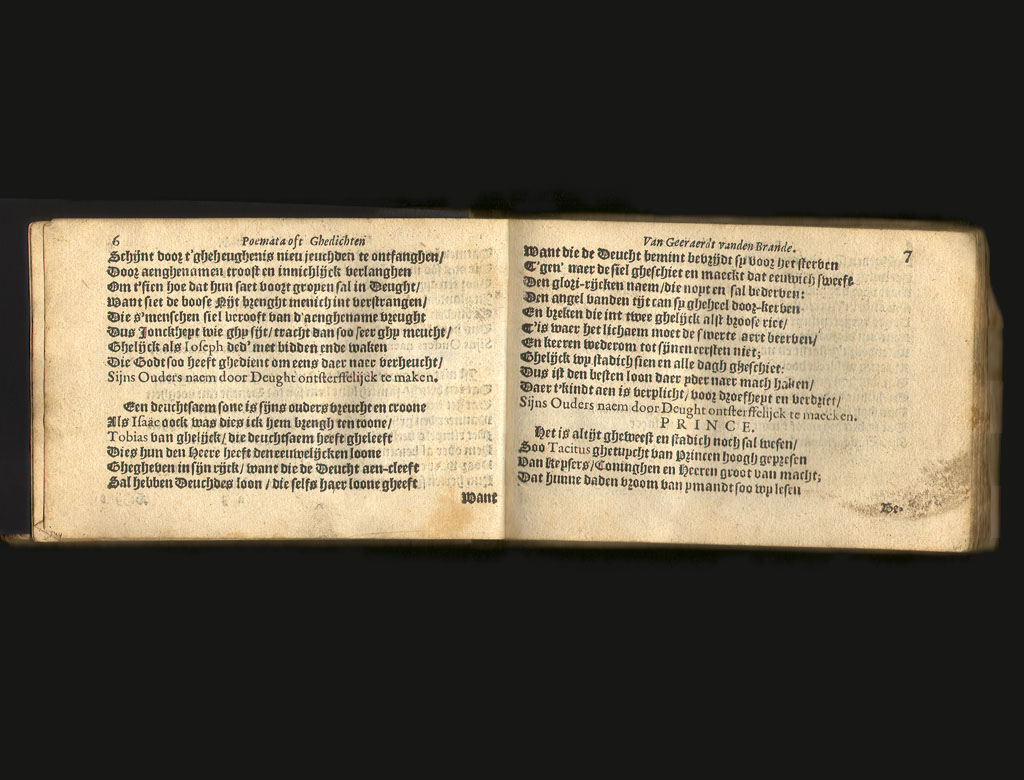 6
Poemata oft Ghedichten
Schijnt door t'gheheughenis nieu jeuchden te ontfanghen/
Door aenghenamen troost en innichlijck verlanghen
Om t'sien hoe dat hun saet voort groyen sal in Deught/
Want siet de boose Nijt brenght menich int verstrangen/
Die s'menschen siel berooft van d'aenghename vreught
Dus Jonckheyt wie ghy sijt/ tracht dan soo seer ghy meucht/
Ghelijck als Ioseph ded' met bidden ende waken
Die Godt soo heeft ghedient om eens daer naer verheucht/
Sijns Ouders naem door Deught ontsterffelijck te maken.
Een deuchtsaem sone is sijns ouders vreucht en croone
Als Isaac oock was dies ick hem brengh ten toone/
Tobias van ghelijck/ die deuchtsaem heeft gheleeft
Dies hun den Heere heeft den eeuwelijcken loone
Ghegheven in sijn rijck/ want die de Deucht aen-cleeft
Sal hebben Deuchdes loon/ die selfs haer loone gheeft
Want
Van Geeraerdt vanden Brande.
7
Want die de Deucht bemint bevrijdt sy voor het sterven
T'gen' naer de siel gheschiet en maeckt dat eeuwich sweeft
Den glori-rijcken naem/ die noyt en sal bederven:
Den angel vanden tijt can sy gheheel door-kerven
En breken die int twee ghelijck alst broose riet/
T'is waer het lichaem moet de swerte aert beerven/
En keeren wederom tot sijnen eersten niet;
Ghelijck wy stadich sien en alle dagh gheschiet:
Dus ist den besten loon daer yder naer mach haken/
Daer t'kindt aen is verplicht/ voor droefheyt en verdriet/
Sijns Ouders naem door Deught ontsterffelijck te maecken.
PRINCE.
Het is altijt gheweest en stadich noch sal wesen/
Soo Tacitus ghetuycht van Princen hoogh gepresen
Van Keysers/ Coninghen en Heeren groot van macht;
Dat hunne daden vroom van ymandt soo wy lesen
Be-